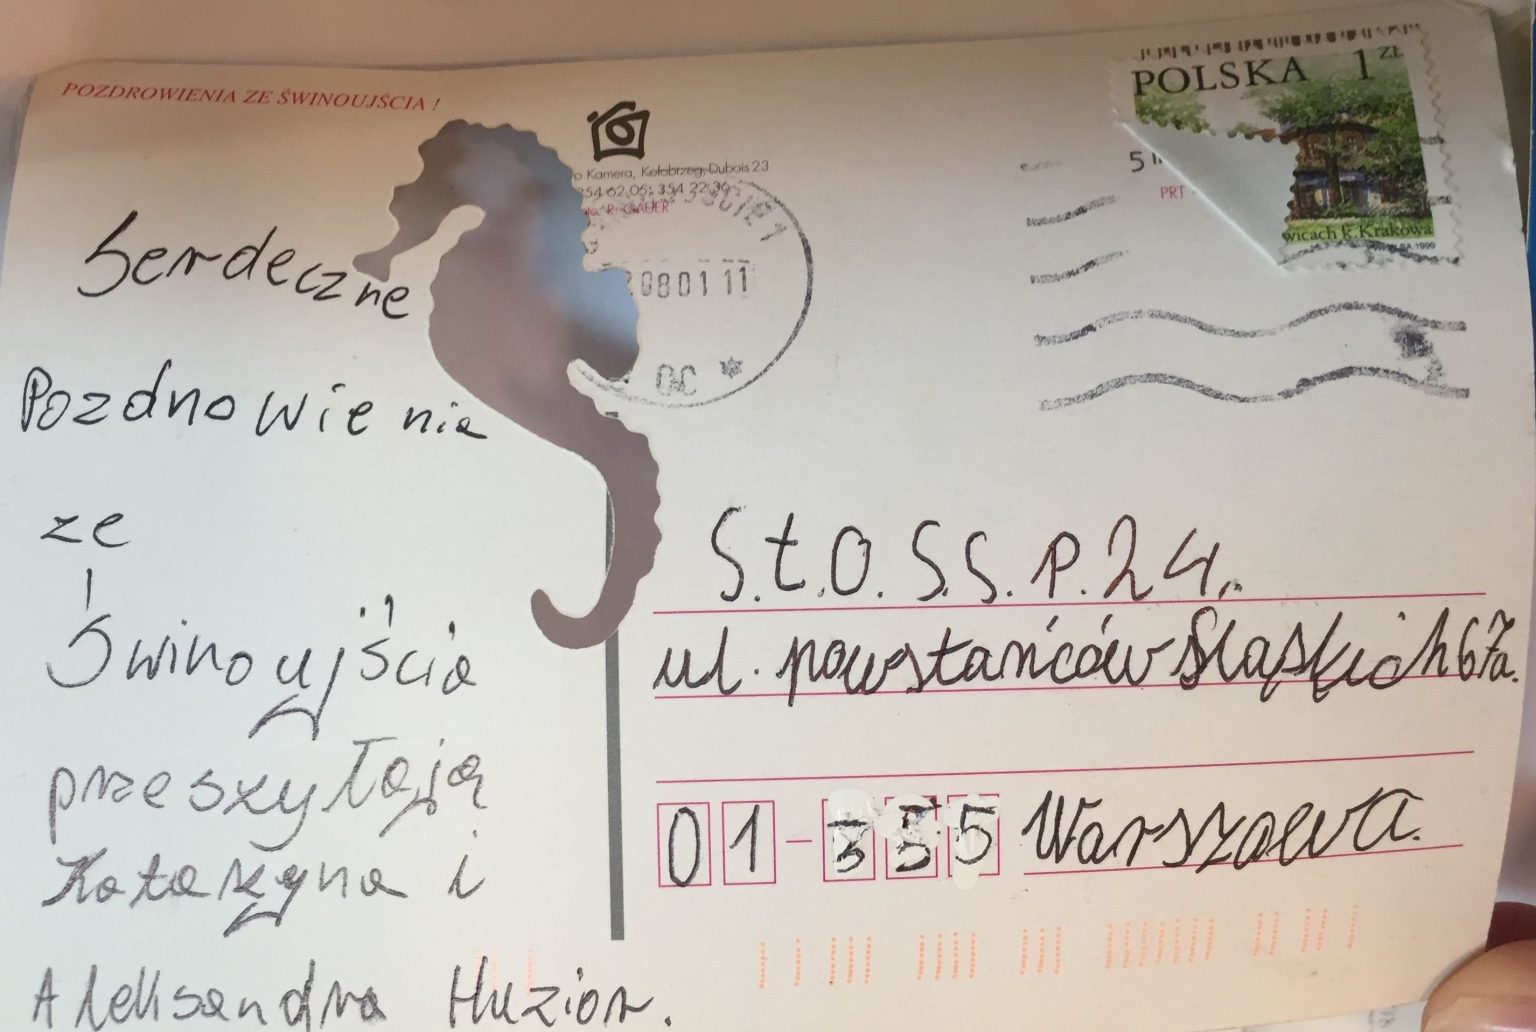 POZDROWIENIA ZE ŚWINOUJŚCIA !
Kamera, Kołobrzeg, Dubois 23
354 62 05; 354 22 36
POLSKA 1 ZŁ
wicach k. Krakowa
1999
PRT
0801 11
Serdeczne
Pozdrowienia
ze
Świnoujścia
przeszyłają
Katarzyna i
Aleksandra Huzior.
S.t.O. S.S. P. 24.
ul. powstańców Śląskich 67a.
01-355 Warszawa.